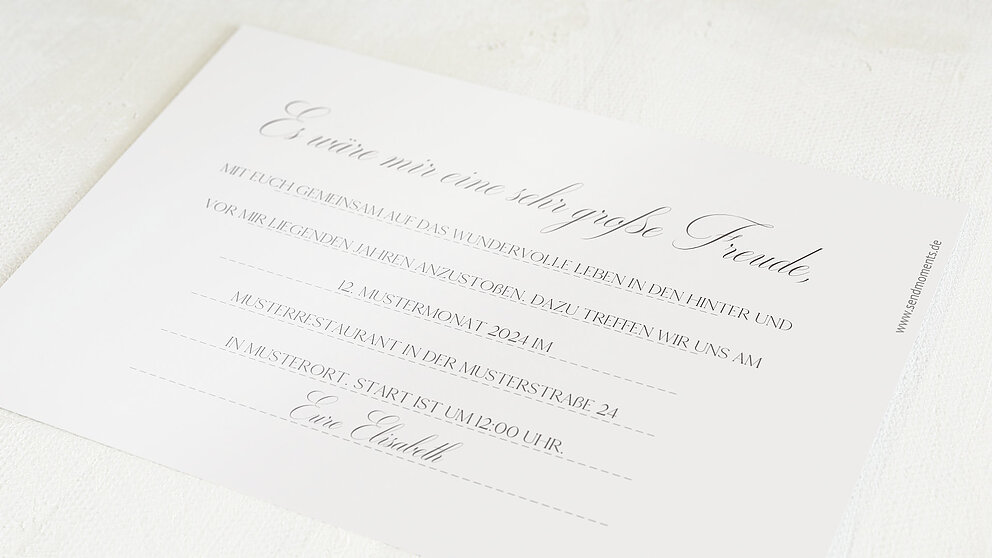 Es wäre mir eine sehr große Freude,
MIT EUCH GEMEINSAM AUF DAS WUNDERVOLLE LEBEN IN DEN HINTER UND
VOR MIR LIEGENDEN JAHREN ANZUSTOßEN. DAZU TREFFEN WIR UNS AM
12. MUSTERMONAT 2024 IM
MUSTERRESTAURANT IN DER MUSTERSTRAßE 24
IN MUSTERORT. START IST UM 12:00 UHR.
Eure Elisabeth
www.sendmoments.de